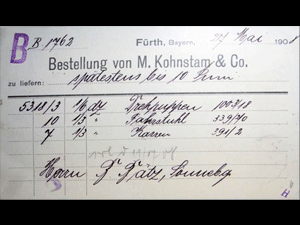 B B 1762 Fürth, Bayern, 27 Mai 1901
Bestellung von M. Kohnstam & Co.
zu liefern: spätestens bis 10 Juni
5318/3 ½ dz Drehpuppen 1003/18
10 ⅓ " Fahrstuhl 339/70
7 ⅓ " Karren 391/2
Herrn Sonneberg
H